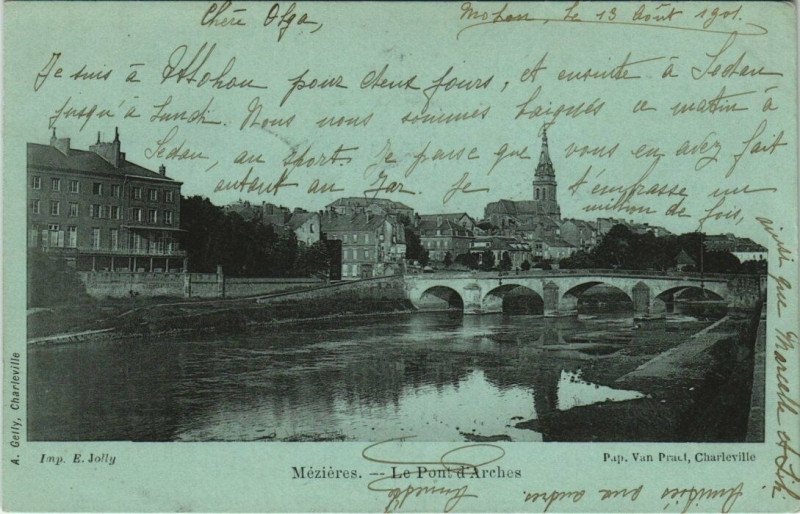 Chère Olga,
Mohon, le 13 Août 1901.
Je suis à Mohon pour deux jours, et ensuite à Sedan
jusqu'à Lundi. Nous nous sommes baignés ce matin à
Sedan, au sport. Je pense que vous en avez fait
autant au Jar. Je t'embrasse un
million de fois,
ainsi que Marcelle et
A. Gelly, Charleville
Imp. E. Jolly
Mézières. — Le Pont d'Arches
Pap. Van Prael, Charleville